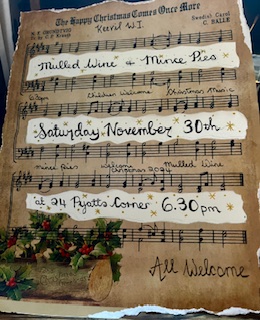 The Happy Christmas Comes Once More
Keevil W.I.
Swedish Carol
C. BALLE
Mulled Wine & Mince Pies
6.30pm Children Welcome Christmas Music
Saturday November 30th
mince Pies welcome Mulled Wine
Christmas 2024
at 24 Pyatts Corner 6.30pm
All Welcome